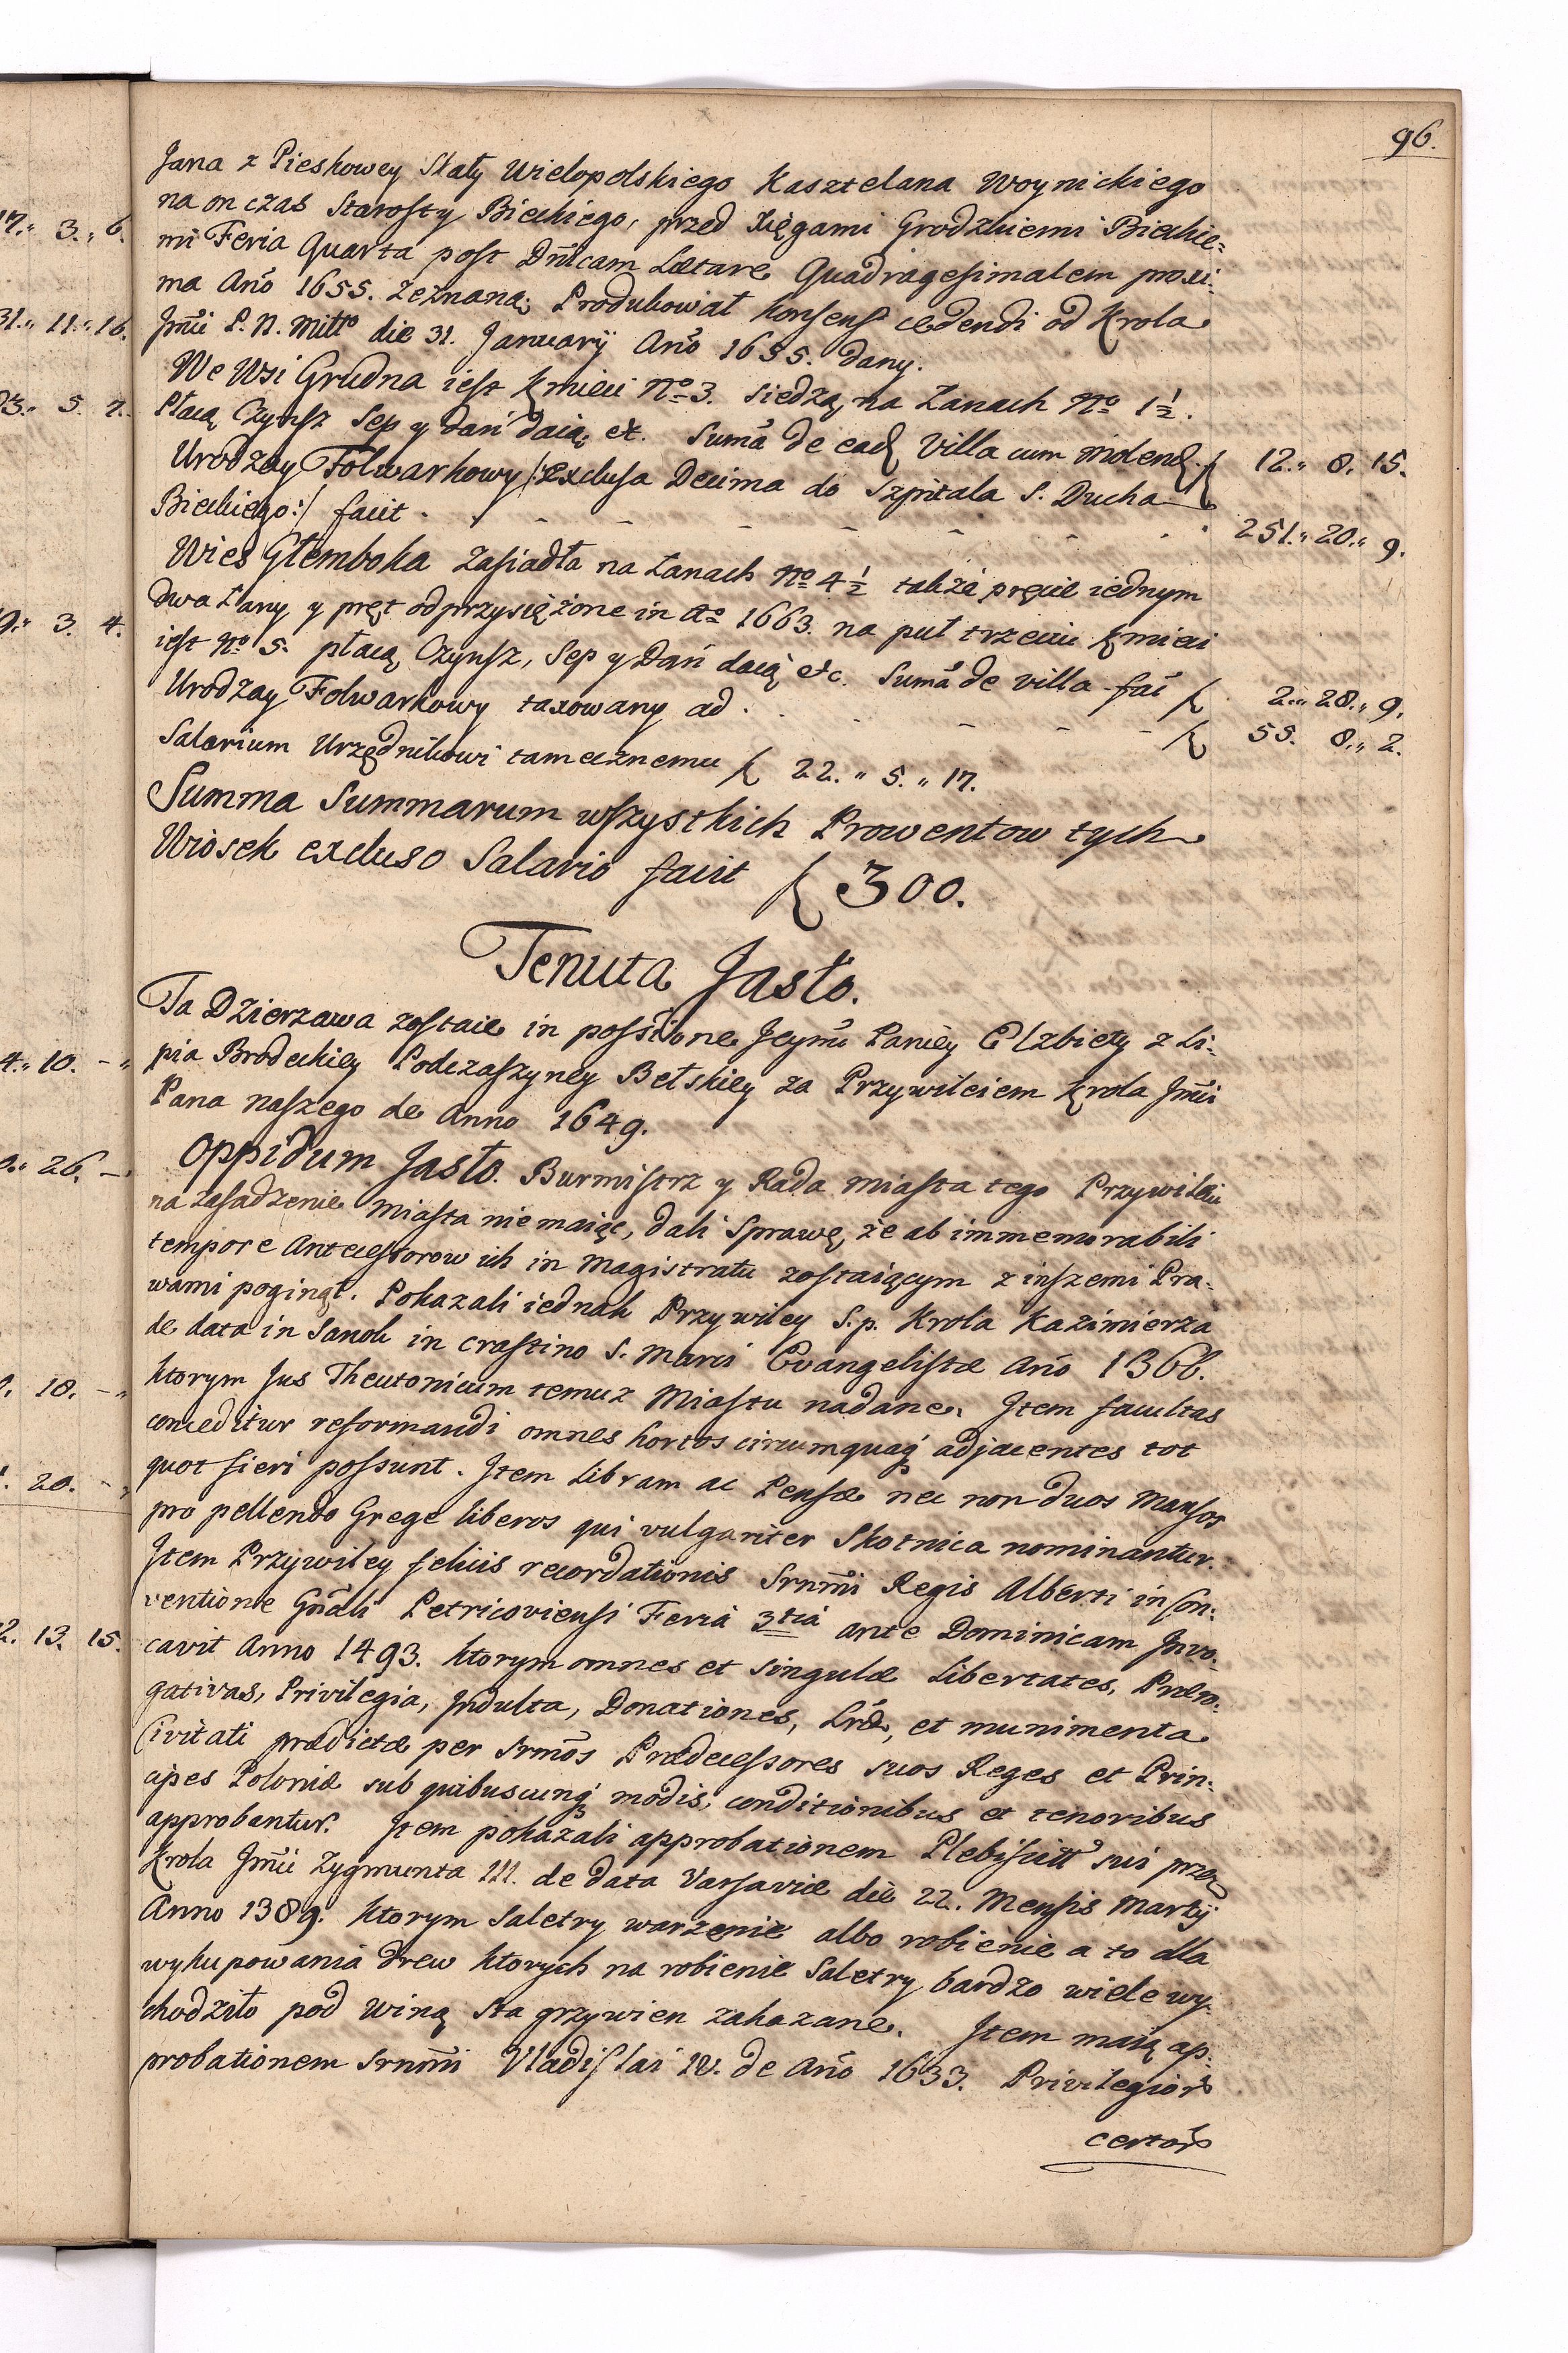 96.
Jana z Pieskowey Skały Wielopolskiego Kasztelana Woynickiego
na on czas Starosty Bieckiego, przed Xięgami Grodzkiemi Bieckie-
mi Feria Quarta post Dnīcam Lætare Quadragesimalem proxi-
ma Año 1655. zeznaną; Produkował Konsens cedendi od Krola
Jmći P. N. Miłłº die 31. Januarij Año 1655. dany.
We Wsi Grudna iest Kmieci Nº 3. siedzą na Łanach Nº 1½.
Płacą Czynsz Sep y dań daią et. Suma de ead Villa cum molend. f 12.. 8. 15.
Urodzay Folwarkowy /: exclusa Decima do Szpitala S. Ducha
Bieckiego :/ facit . - - - - - - . . 251.. 20.. 9.
Wies Głemboka zasiadła na Łanach Nº 4½ także pręcie iednym
dwa Łany y pręt odprzysiężone in Aº 1663. na puł trzeciu Kmieci
iest Nº 5. płacą Czynsz, Sep y Dań daią etc. Suma de villa fac̃ f 2.. 28.. 9.
Urodzay Folwarkowy taxowany ad . . - - - f 55. 8.. 2.
Salarium Urzędnikowi tamecznemu f 22. " 5. " 17.
Summa Summarum wszystkich Prowentow tych
Wiosek excluso Salario facit f 300.
Tenuta Jasło.
Ta Dzierzawa zostaie in possione Jeymć Paniey Elzbiety z Li-
pia Brodeckiey Podczaszyney Bełskiey za Przywileiem Krola Jmći
Pana naszego de Anno 1649.
Oppidum Jasło. Burmistrz y Rada Miasta tego Przywileiu
na zasadzenie Miasta nie maiąc, dali Sprawę, że ab immemorabili
tempore Antecessorow ich in Magistratu zostaiącym z inszemi Pra-
wami poginął. Pokazali iednak Przywiley S. p. Krola Kazimierza
de data in Sanok in crastino S. Marci Evangelistæ Año 1366.
ktorym Jus Theutonicum temuz Miastu nadane. Jtem facultas
conceditur reformandi omnes hortos circumquaq; adjacentes tot
quot fieri possunt. Jtem Libram ac Pensæ nec non duos Mansos
pro pellendo Grege liberos qui vulgariter Skotnica nominantur.
Jtem Przywiley felicis recordationis Srnm̃i Regis Alberti in Con-
ventione Gñali Petricoviensi Feria 3tiá ante Dominicam Jnvo-
cavit Anno 1493. ktorym omnes et singulæ Libertates, Præro-
gativas, Privilegia, Jndulta, Donationes, Lr̃æ, et munimenta
Civitati prædictæ per Srm̃os Prædecessores suos Reges et Prin-
cipes Poloniæ sub quibuscunq; modis, conditionibus et tenoribus
approbantur. Jtem pokazali approbationem Plebiscitt sui przez
Krola Jmći Zygmunta III. de data Varsaviæ die 22. Mensis Martij
Anno 1389. ktorym Saletry warzenie albo robienie a to dla
wykupowania drew ktorych na robienie Saletry bardzo wiele wy-
chodziło pod winą sta grzywien zakazane. Jtem maią ap-
probationem Srnm̃i Vladislai IV. de Año 1633. Privilegiorũ
certorũ